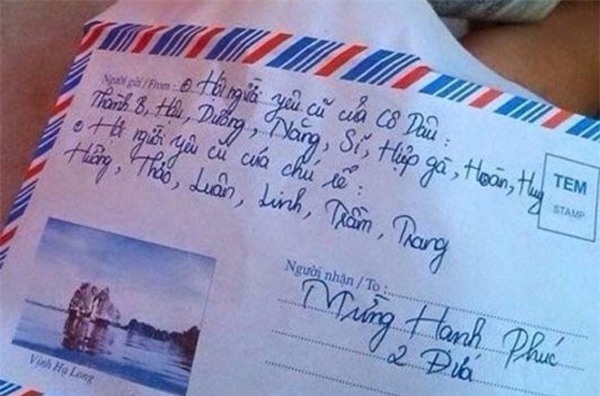 Người gửi / From : Hội người yêu cũ của Cô Dâu :
Thành B, Hữu, Dưỡng, Năng, Sĩ, Hiệp gà, Hoàn, Huy
Hội người yêu cũ của chú rể :
Hương, Thảo, Luân, Linh, Trâm, Trang
TEM
STAMP
Người nhận / To :
Mừng Hanh Phúc
2 Đứa
Vịnh Hạ Long